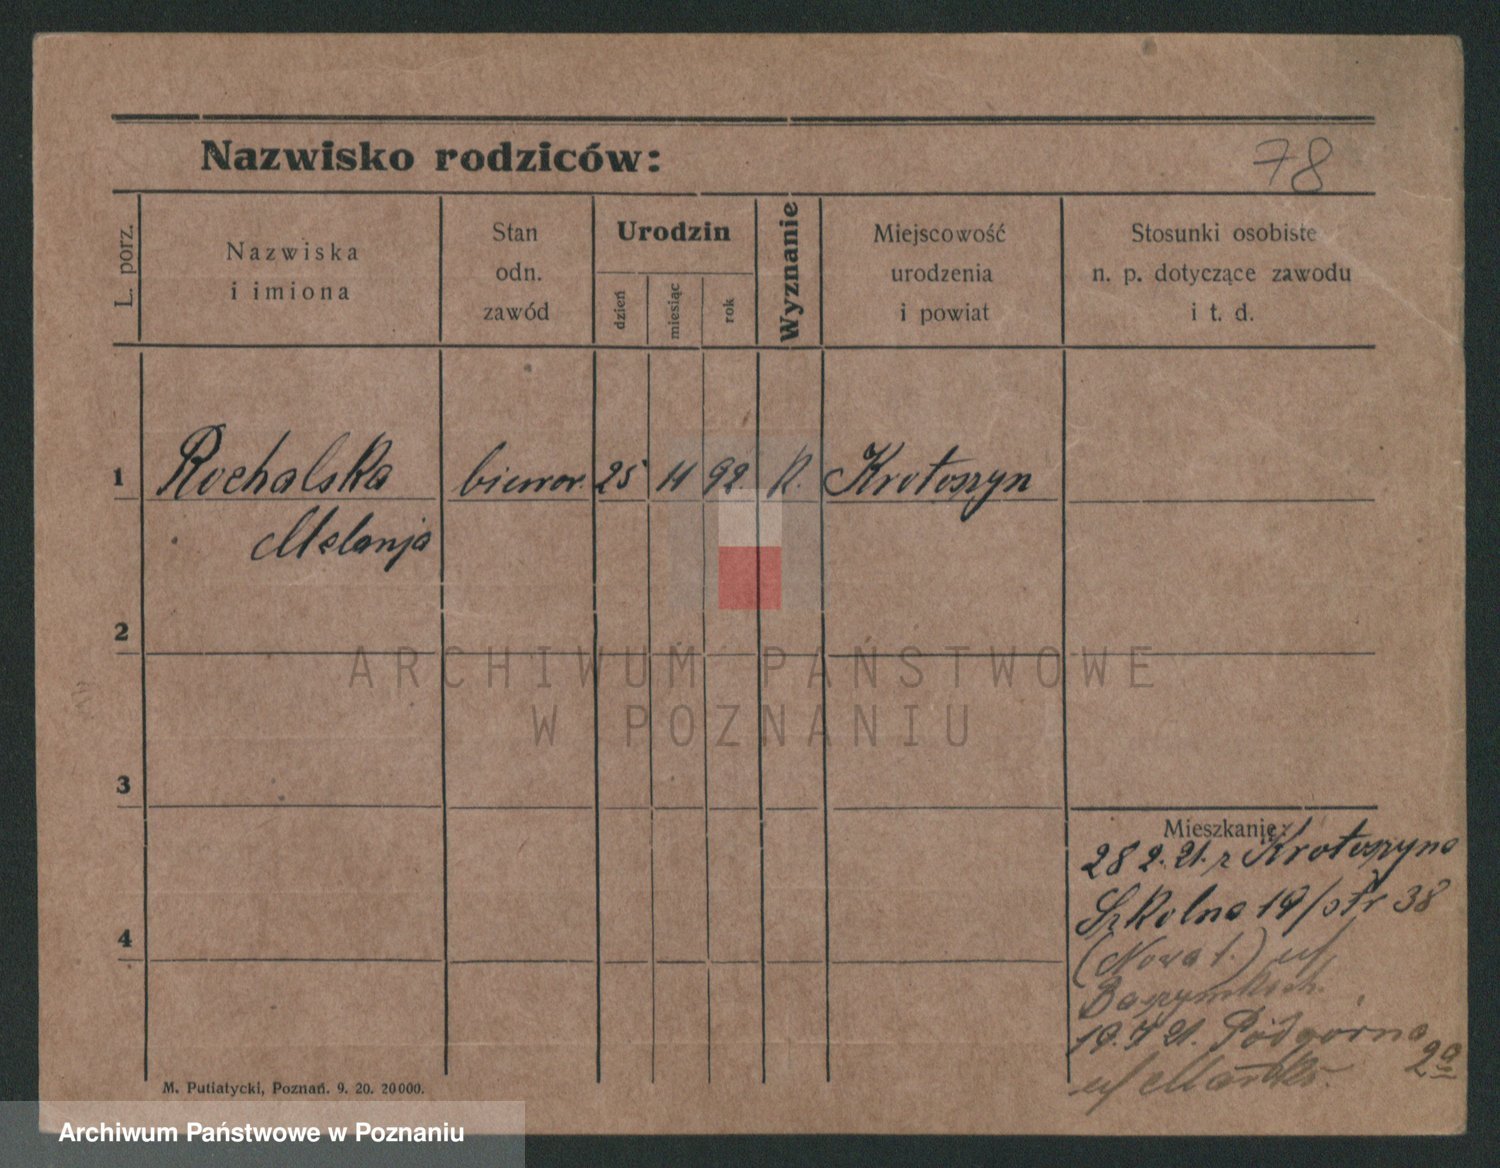 Nazwisko rodziców:
78
L. porz.
Nazwiska
i imiona
Stan
odn.
zawód
Urodzin
dzień
miesiąc
rok
Wyznanie
Miejscowość
urodzenia
i powiat
Stosunki osobiste
n. p. dotyczące zawodu
i t. d.
1 Rochalska biuror. 25 11 92 R. Krotoszyn
Melanja
2
3
4
Mieszkanie:
28 2. 21. z Krotoszyna
Szkolna 19/ str 38
(Nowa 1.)
19. 7 21. Podgórna
2a
M. Putiatycki, Poznań. 9. 20. 20000.
ARCHIWUM PAŃSTWOWE
W POZNANIU
Archiwum Państwowe w Poznaniu